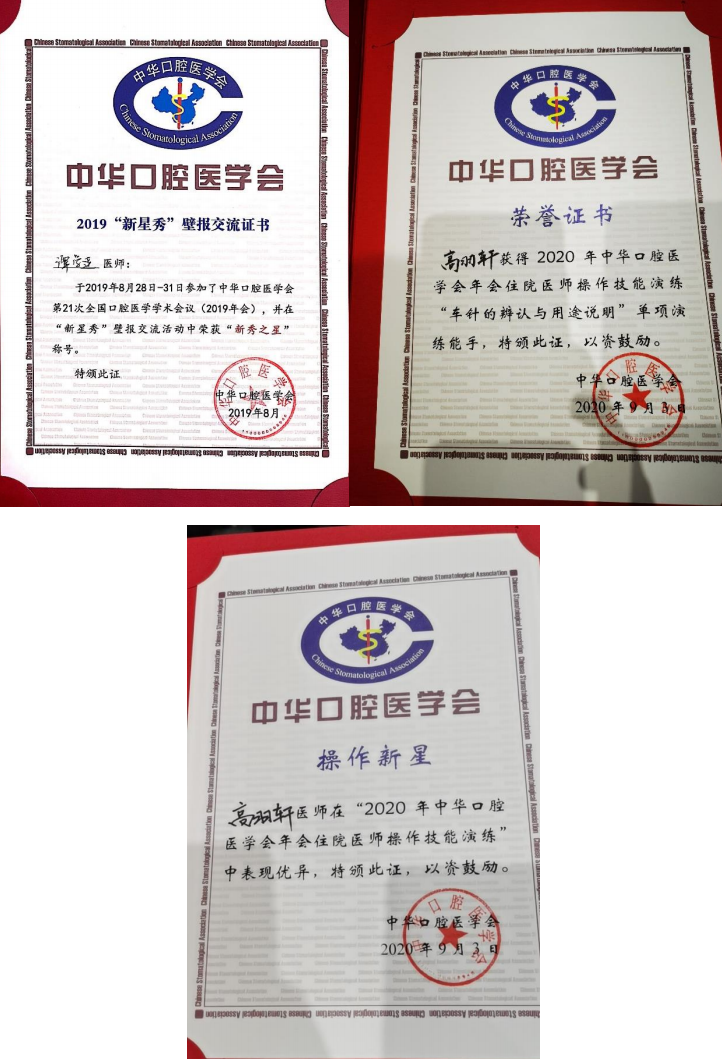 Chinese Stomatological Association Chinese Stomatological Association Chinese Stomatological Association
中华口腔医学会
Chinese Stomatological Association
中华口腔医学会
2019“新星秀”壁报交流证书
医师：
于2019年8月28日-31日参加了中华口腔医学会
第21次全国口腔医学学术会议（2019年会），并在
“新星秀”壁报交流活动中荣获“新秀之星”
称号。
特颁此证
中华口腔医学会
2019年8月
Chinese Stomatological Association Chinese Stomatological Association Chinese Stomatological Association
中华口腔医学会
Chinese Stomatological Association
中华口腔医学会
荣誉证书
高羽轩获得 2020 年中华口腔医
学会年会住院医师操作技能演练
“车针的辨认与用途说明”单项演
练能手，特颁此证，以资鼓励。
中华口腔医学会
2020 年 9 月 3 日
Chinese Stomatological Association Chinese Stomatological Association Chinese Stomatological Association
中华口腔医学会
Chinese Stomatological Association
中华口腔医学会
操作新星
高羽轩医师在“2020 年中华口腔
医学会年会住院医师操作技能演练”
中表现优异，特颁此证，以资鼓励。
中华口腔医学会
2020 年 9 月 3 日